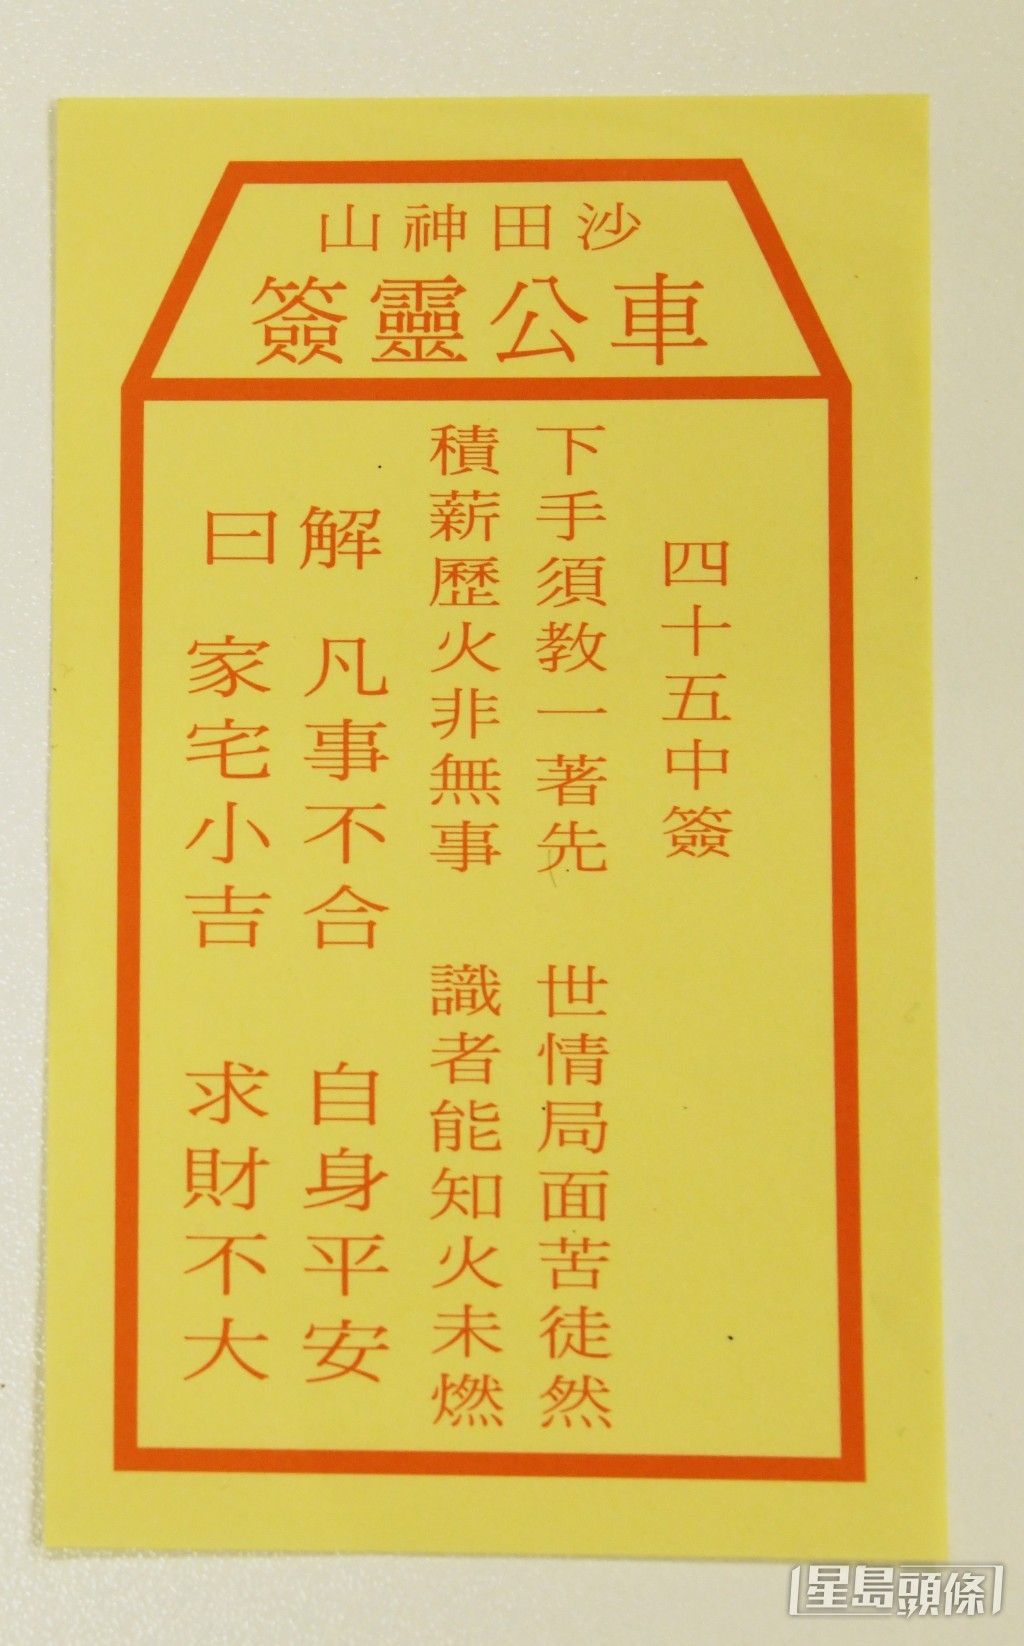 沙田神山
車公靈簽
四十五中簽
下手須教一著先 世情局面苦徒然
積薪歷火非無事 識者能知火未燃
解 凡事不合 自身平安
曰 家宅小吉 求財不大
星島頭條